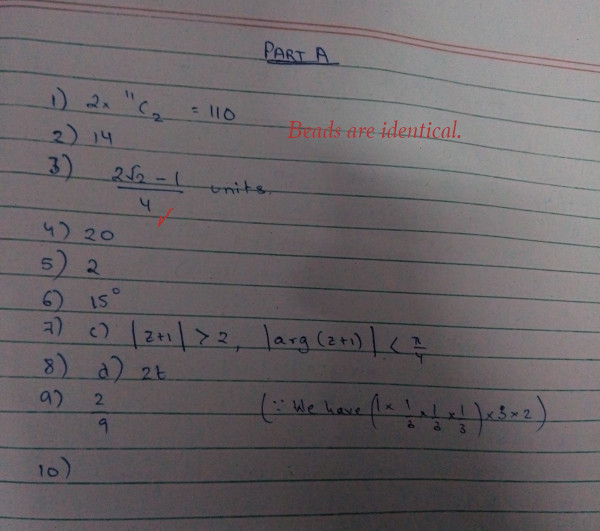 PART A
1) 2× ¹¹C₂ = 110
Beads are identical.
2) 14
3) (2√2 - 1)/4 units.
4) 20
5) 2
6) 15°
7) c) |z+1| > 2, |arg (z+1)| < π/4
8) d) 2t
9) 2/9 (∵ We have (1 × 1/3 × 1/3 × 1/3) × 3 × 2)
10)